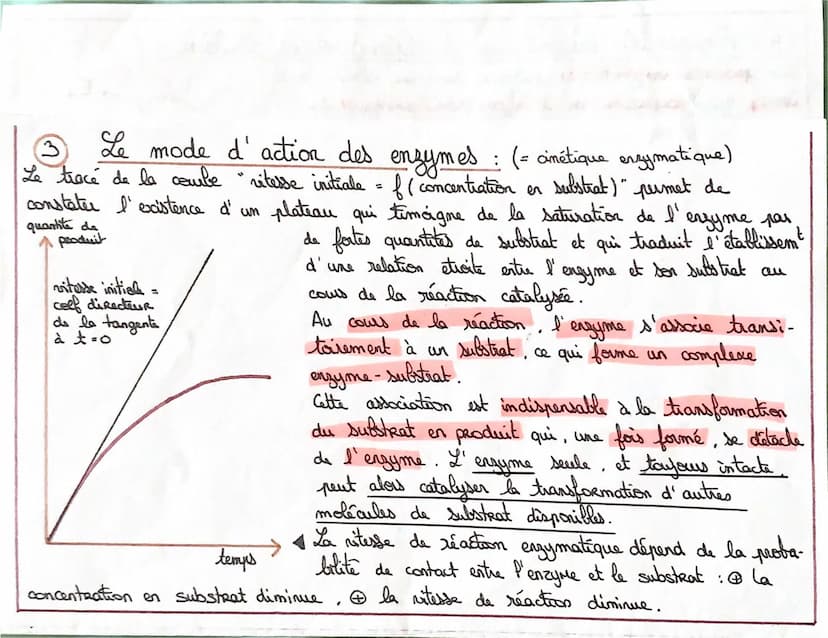 3 Le mode d'action des enzymes : (= cinétique enzymatique)
Le tracé de la courbe "vitesse initiale = f (concentration en substrat)" permet de
constater l'existence d'un plateau qui témoigne de la saturation de l'enzyme par
quantité de
produit
de fortes quantités de substrat et qui traduit l'établissemt
d'une relation étroite entre l'enzyme et son substrat au
cours de la réaction catalysée.
vitesse initiale =
coef directeur
de la tangente
à t=0
Au cours de la réaction, l'enzyme s'associe transi-
toirement à un substrat, ce qui forme un complexe
enzyme-substrat.
Cette association est indispensable à la transformation
du substrat en produit qui, une fois formé, se détache
de l'enzyme. L'enzyme seule, et toujours intacte,
peut alors catalyser la transformation d'autres
molécules de substrat disponibles.
temps
◀ La vitesse de réaction enzymatique dépend de la proba-
bilité de contact entre l'enzyme et le substrat : ⊕ la
concentration en substrat diminue, ⊕ la vitesse de réaction diminue.